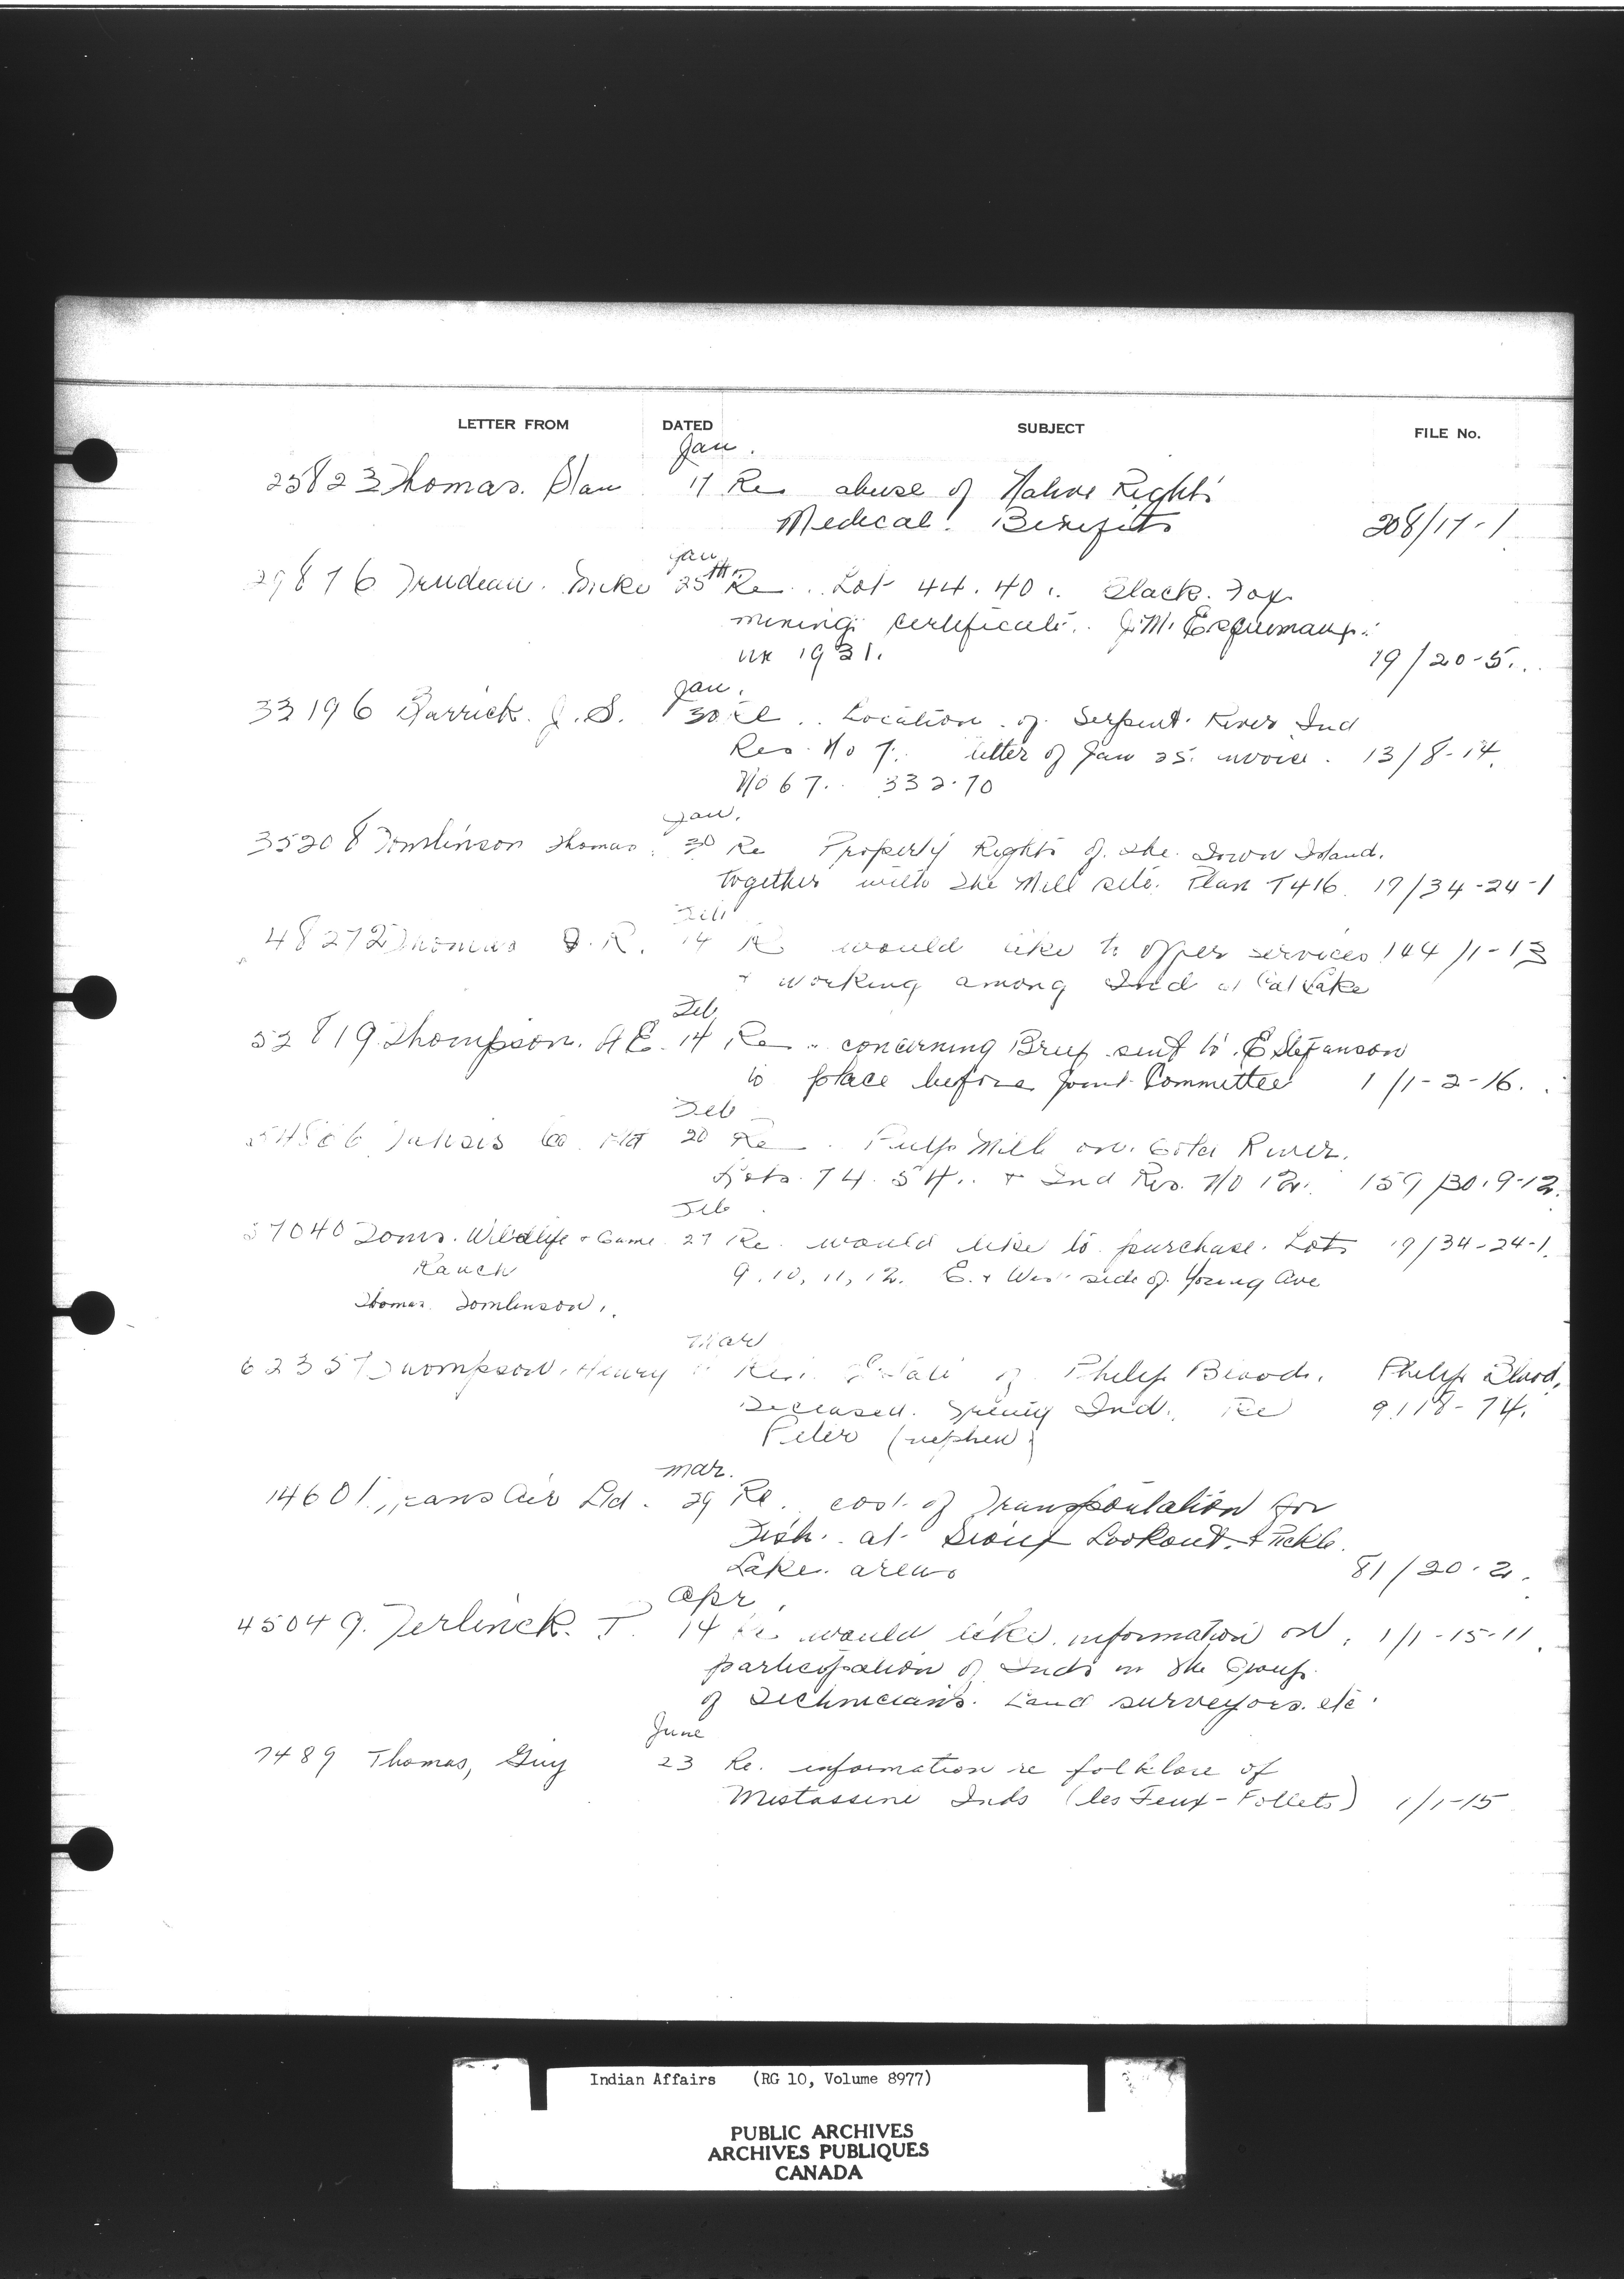 LETTER FROM DATED SUBJECT FILE No.
Jan.
25823 Thomas. 17 Re abuse of Native Rights
Medical. Benefits 208/17-1
Jan
29876 Trudeau. 25th Re.. Lot 44.40.. Black. Fox
mining certificate.. J.M. Esquimaux.
in 1931. 19/20-5...
Jan.
33196 J.S. 30 .. Location of Serpent River Ind
Res. No 7. letter of Jan 25. invoice. 13/8-14.
No 67.. 332.70
Jan.
35208 Tomlinson Thomas. 30 Re Property Rights of the Town Island.
together with the Mill site. Plan T416. 19/34-24-1
Feb
48272 Thomas R. 14 Re would like to offer services 144/1-13
+ working among Ind at Cat Lake
Feb
52819 Thompson. A E. 14 Re. concerning Brief sent to E Stefanson
to place before Joint Committee 1/1-2-16.
Feb
Tahsis Co. Ltd 20 Re. Pulp Mill on River.
Lots. 74. 54.. + Ind Res. No 12. 159/30-9-12.
Feb
37040 Toms. Wildlife + Game 27 Re. would like to purchase. Lots 19/34-24-1.
Ranch 9, 10, 11, 12. E. + West side of Young Ave
Thomas Tomlinson.
Mar
62357 Thompson, Henry Re. Estate of Philip Blood. Philip Blood,
Deceased. Ind., Re 9118-74.
Peter (nephew)
Mar.
14601. Trans Air Ltd. 29 Re. cost of Transportation for
Fish. at Sioux Lookout. + Pickle.
Lake. areas 81/20-2.
Apr.
45049. Terlinck. T. 14 Re would like information on, 1/1-15-11.
participation of Inds in the Group
of Technicians. Land surveyors. etc.
June
7489 Thomas, Guy 23 Re. information re folklore of
Mistassini Inds (les Feux-Follets) 1/1-15
Indian Affairs (RG 10, Volume 8977)
PUBLIC ARCHIVES
ARCHIVES PUBLIQUES
CANADA